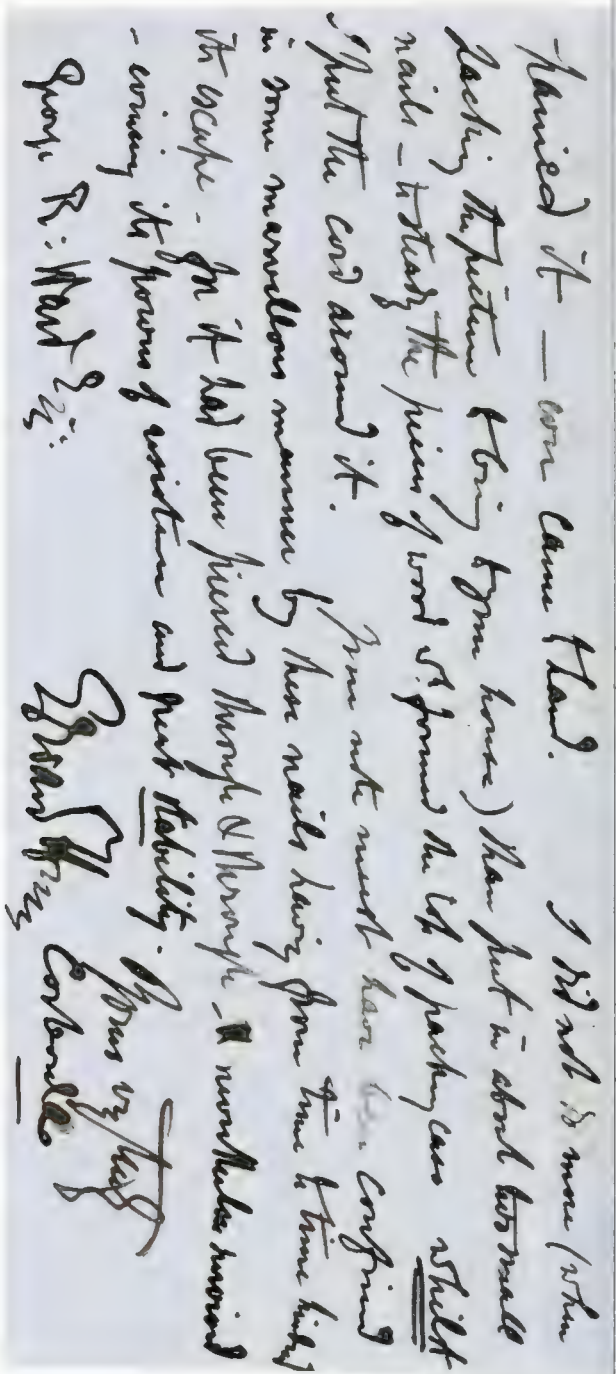 -panied it — ever came to hand. I did not do more (when
packing the picture to bring to your house) than put in about two small
nails - to steady the pieces of wood wh. formed the lid of packing case whilst
I put the cord around it. Your note must have been confined
in some marvellous manner by these nails having from time to time hindered
its escape - for it had been pierced through & through - & nevertheless survived
- evincing its powers of resistance and great stability. Yours vy truly
George R: Ward Esq: Edward Hy Corbould